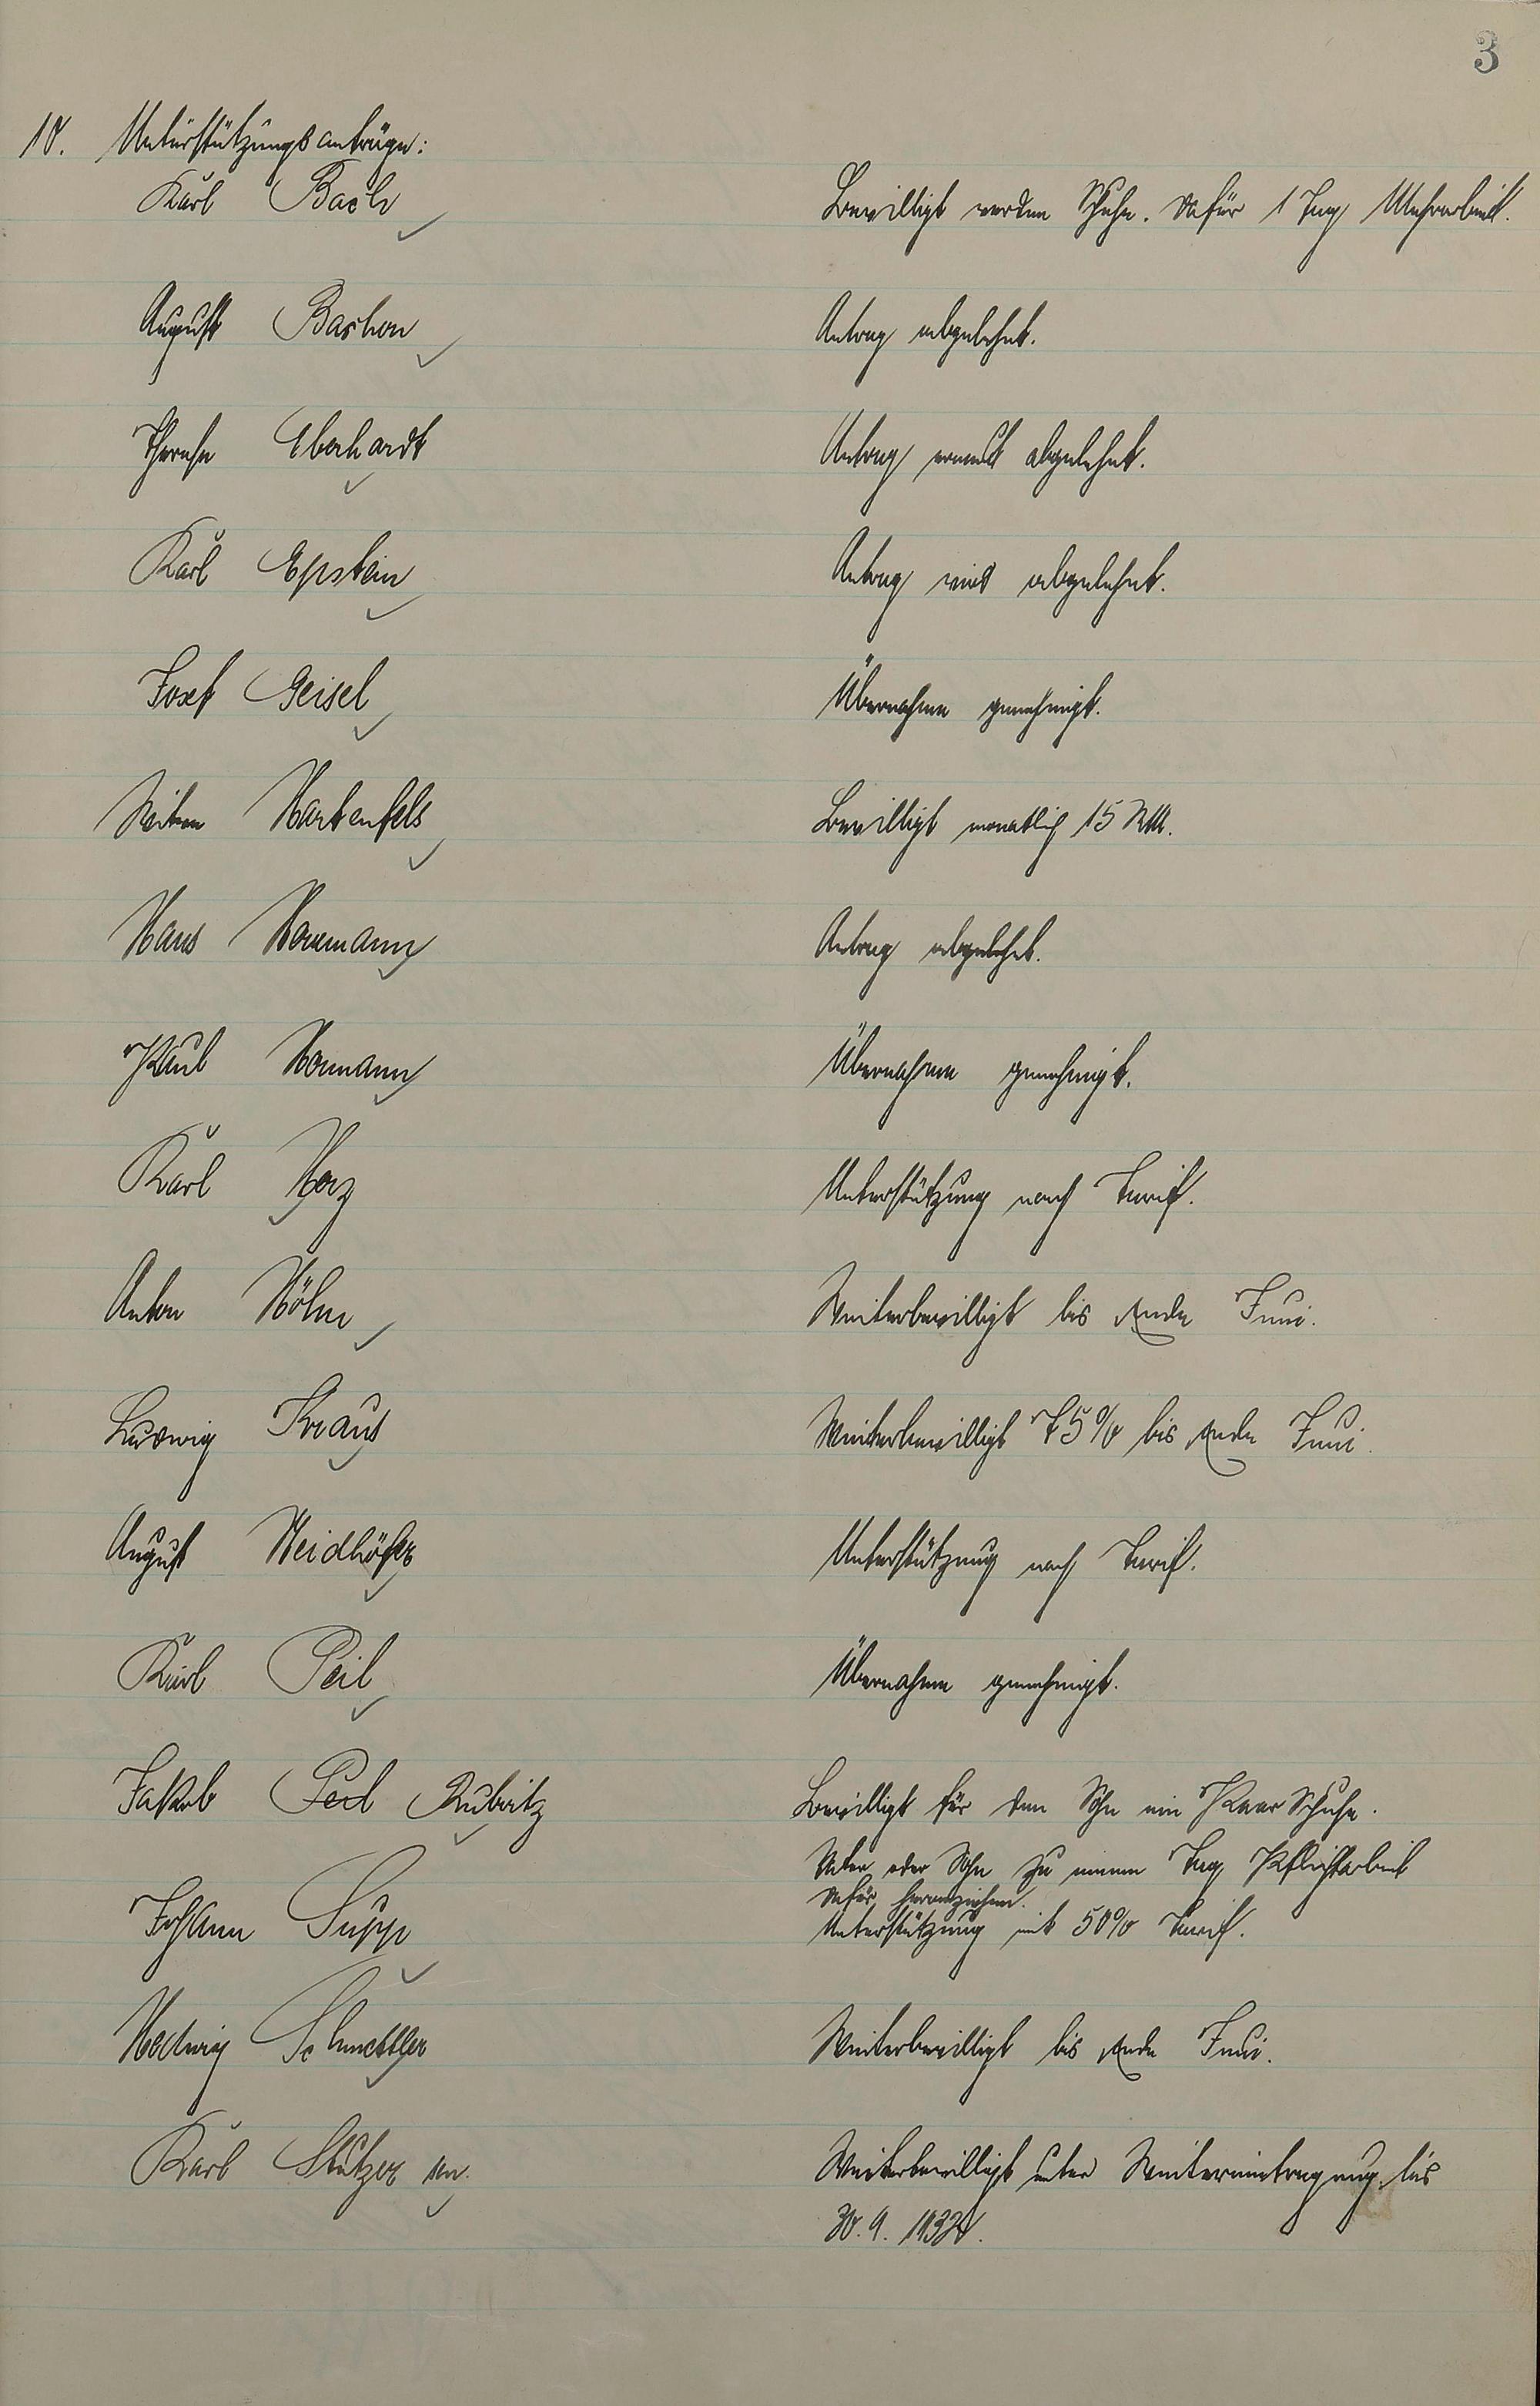 3
10. Unterstützungsanträge:
Karl Bach Bewilligt werden Schuhe. Dafür 1 Tag Mehrarbeit.
August Bachon Antrag abgelehnt.
Therese Eberhardt Antrag erneut abgelehnt.
Karl Epstein Antrag wird abgelehnt.
Josef Geisel Übernahme genehmigt.
Hartenfels Bewilligt monatlich 15 RM.
Hans Hermann Antrag abgelehnt.
Paul Hermann Übernahme genehmigt.
Karl Herz Unterstützung nach Tarif.
Anton Höhn Weiterbewilligt bis Ende Juni.
Ludwig Kraus Weiterbewilligt 75% bis Ende Juni.
August Neidhöfer Unterstützung nach Tarif.
Karl Peil Übernahme genehmigt.
Jakob Peil Rubritz Bewilligt für den Sohn ein Paar Schuhe.
Vater oder Sohn zu einem Tag Pflichtarbeit
dafür heranziehen.
Johann Supp Unterstützung mit 50% Tarif.
Hedwig Weiterbewilligt bis Ende Juni.
Karl Stutzer sen. Weiterbewilligt unter Weitereintragung bis
30. 9. 1932.